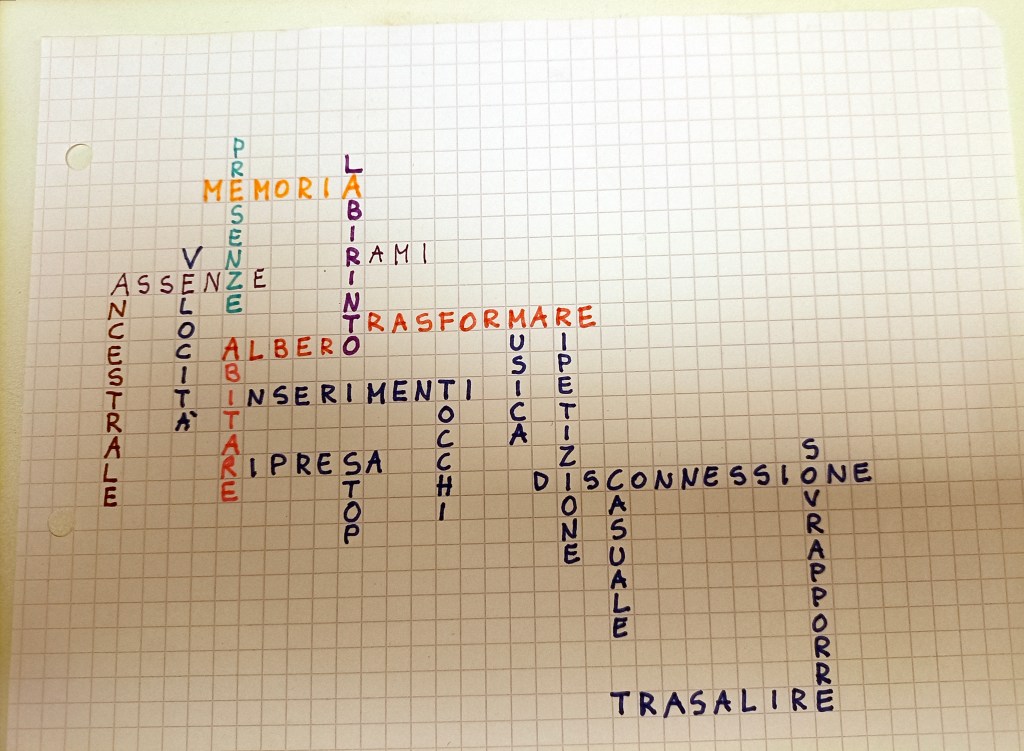 PRESENZE
LABIRINTO
MEMORIA
VELOCITÀ
RAMI
ASSENZE
ANCESTRALE
TRASFORMARE
MUSICA
RIPETIZIONE
ALBERO
ABITARE
INSERIMENTI
TOCCHI
RIPRESA
STOP
SOVRAPPORRE
DISCONNESSIONE
CASUALE
TRASALIRE